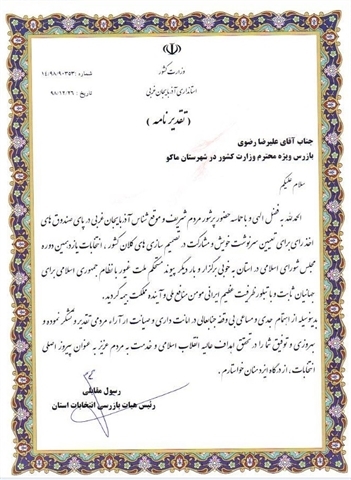 وزارت کشور
استانداری آذربایجان غربی
شماره: ۱۴/۹۸/۹۰۳۵۳
تاریخ: ۹۸/۱۲/۲۶
( تقدیر نامه )
جناب آقای علیرضا رضوی
بازرس ویژه محترم وزارت کشور در شهرستان ماکو
سلام علیکم
الحمدلله به فضل الهی و با حماسه حضور پرشور مردم شریف و موقع شناس آذربایجان غربی در پای صندوق های
اخذ رای برای تعیین سرنوشت خویش و مشارکت در تصمیم سازی های کلان کشور ، انتخابات یازدهمین دوره
مجلس شورای اسلامی در استان به خوبی برگزار و بار دیگر پیوند مستحکم ملت غیور با نظام جمهوری اسلامی برای
جهانیان ثابت و با تبلور ظرفیت عظیم ایرانی مومن منافع ملی و آینده مملکت بیمه گردید.
بدینوسیله از اهتمام جدی و مساعی بی وقفه جنابعالی در امانت داری و صیانت از آراء مردمی تقدیر و تشکر نموده و
بهروزی و توفیق شما را در تحقق اهداف عالیه انقلاب اسلامی و خدمت به مردم عزیز به عنوان پیروز اصلی
انتخابات ، از درگاه ایزد منان خواستارم .
رسول مقابلی
رئیس هیات بازرسی انتخابات استان